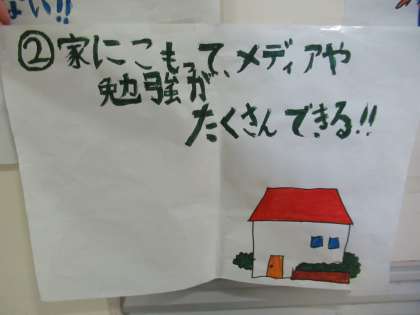 ない!!
②家にこもって、メディアや
勉強が
たくさんできる!!